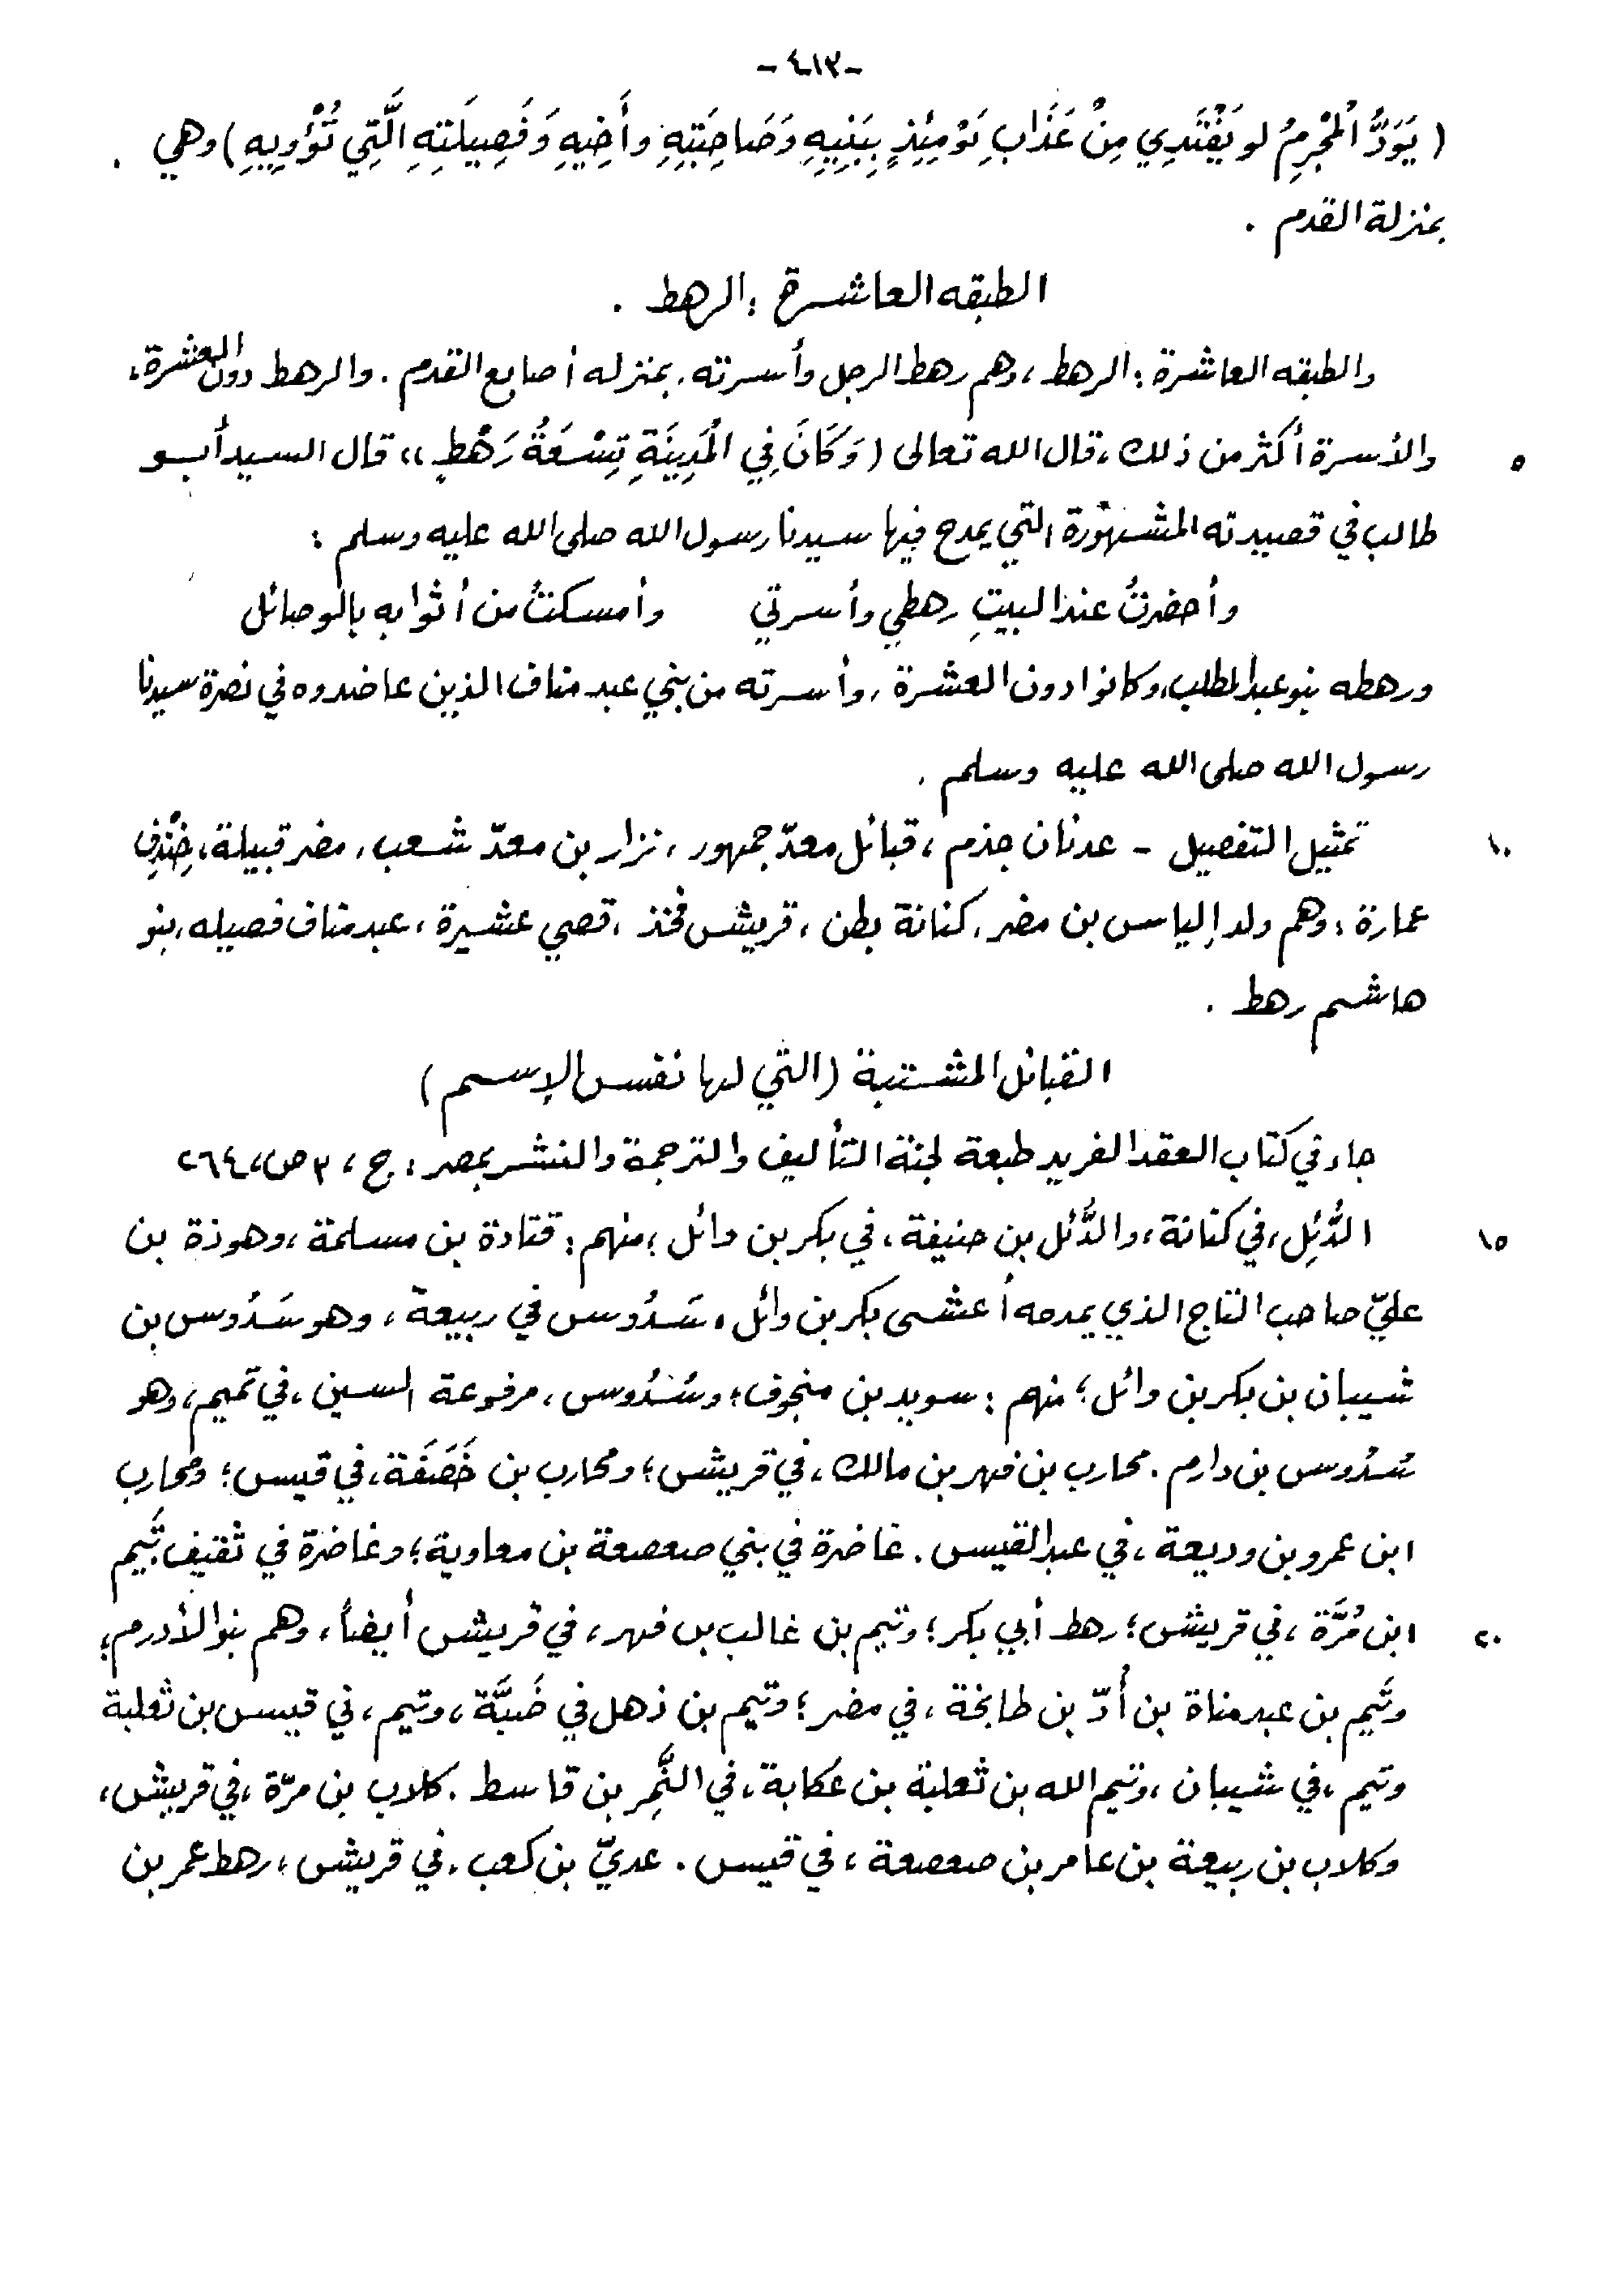 -٤١٣-
( يَوَدُّ الْمُجْرِمُ لو يَفْتَدِي مِنْ عَذَابِ يَوْمِئِذٍ بِبَنِيهِ وَصَاحِبَتِهِ وأَخِيهِ وَفَصِيلَتِهِ الَّتِي تُؤْوِيهِ ) وهي .
بمنزلة القدم .
الطبقه العاشرة : الرهط .
والطبقه العاشرة : الرهط ، وهم رهط الرجل وأسرته ، بمنزله أصابع القدم . والرهط دون العشرة ،
٥ والأسرة أكثر من ذلك ، قال الله تعالى ( وَكَانَ فِي الْمَدِينَةِ تِسْعَةُ رَهْطٍ ،، قال السيد أبو
طالب في قصيدته المشهورة التي يمدح فيها سيدنا رسول الله صلى الله عليه وسلم :
وأحضرتُ عند البيتِ رهطي وأسرتي وأمسكتُ من أثوابه بالوصائل
ورهطه بنو عبد المطلب ، وكانوا دون العشرة ، وأسرته من بني عبد مناف الذين عاضدوه في نصرة سيدنا
رسول الله صلى الله عليه وسلم .
١٠ تمثيل التفصيل - عدنان جذم ، قبائل معدّ جمهور ، نزار بن معدّ شعب ، مضر قبيلة ، خِنْدِف
عمارة : وهم ولد إلياس بن مضر ، كنانة بطن ، قريش فخذ ، قصي عشيرة ، عبد مناف فصيله ، بنو
هاشم رهط .
القبائل المشتبة ( التي لها نفس الإسم )
جاء في كتاب العقد الفريد طبعة لجنة التأليف والترجمة والنشر بمصر ، ج ، ٣ ص ، ٢٦٤
١٥ الدُّئِل ، في كنانة ، والدُّئل بن حنيفة ، في بكر بن وائل ؛ منهم : قتادة بن مسلمة ، وهوذة بن
عليّ صاحب التاج الذي يمدحه أعشى بكر بن وائل ، سَدُوس في ربيعة ، وهو سَدُوس بن
شيبان بن بكر بن وائل ؛ منهم : سويد بن منجوف ؛ وسُدُوس ، مرفوعة السين ، في تميم ، وهو
سُدُوس بن دارم . محارب بن فهر بن مالك ، في قريش ؛ ومحارب بن خَصَفَة ، في قيس ؛ ومحارب
ابن عمرو بن وديعة ، في عبد القيس . غاضرة في بني صعصعة بن معاوية ؛ وغاضرة في ثقيف ، تَيم
٢٠ ابن مُرَّة ، في قريش ؛ رهط أبي بكر ؛ وتيم بن غالب بن فهر ، في قريش أيضاً ، وهم بنو الأدرم ؛
وتَيم بن عبد مناة بن أُدّ بن طابخة ، في مضر ؛ وتيم بن ذهل في ضَبَّة ، وتيم ، في قيس بن ثعلبة
وتيم ، في شيبان ، وتيم الله بن ثعلبة بن عكابة ، في النَّمِر بن قاسط . كلاب بن مرّة ، في قريش ،
وكلاب بن ربيعة بن عامر بن صعصعة ، في قيس . عديّ بن كعب ، في قريش ، رهط عمر بن